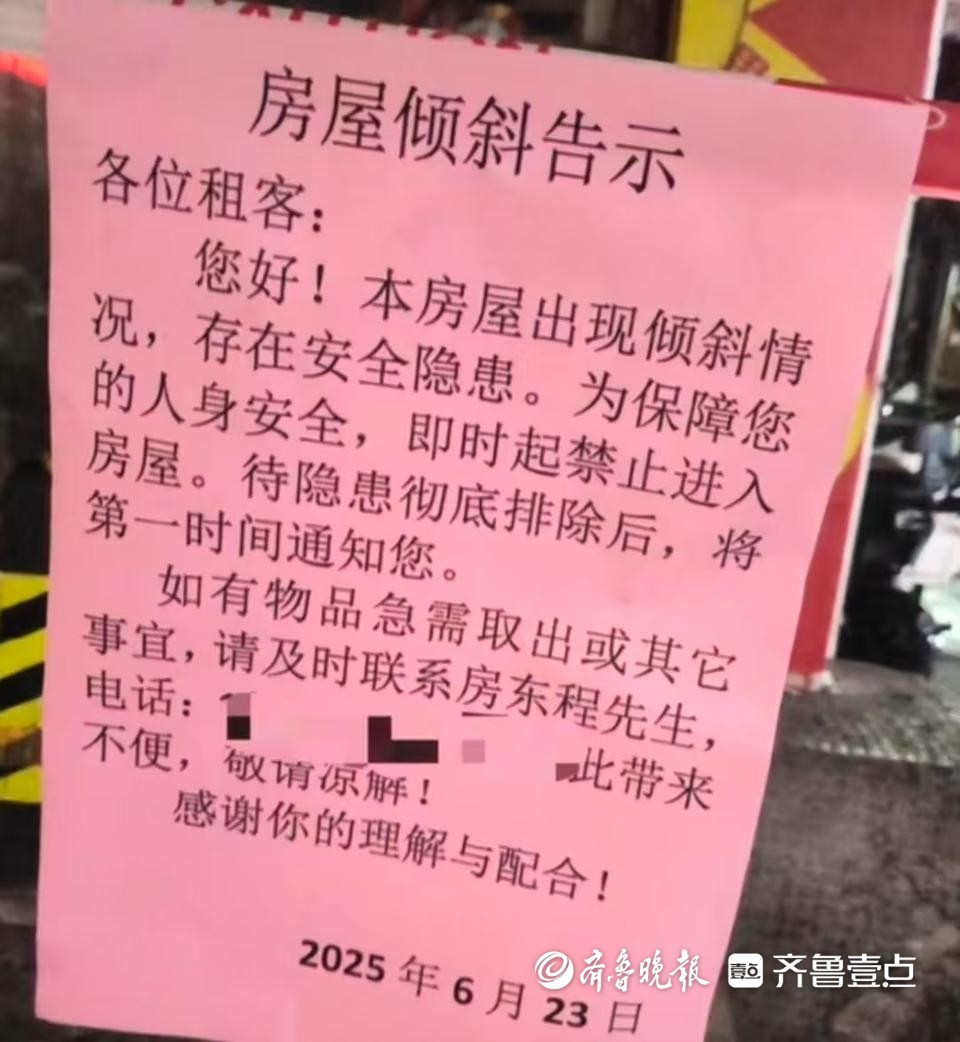 房屋倾斜告示
各位租客：
您好！本房屋出现倾斜情
况，存在安全隐患。为保障您
的人身安全，即时起禁止进入
房屋。待隐患彻底排除后，将
第一时间通知您。
如有物品急需取出或其它
事宜，请及时联系房东程先生，
电话：
此带来
不便，敬请凉解！
感谢你的理解与配合！
2025年6月23日
齐鲁晚报 壹点 齐鲁壹点